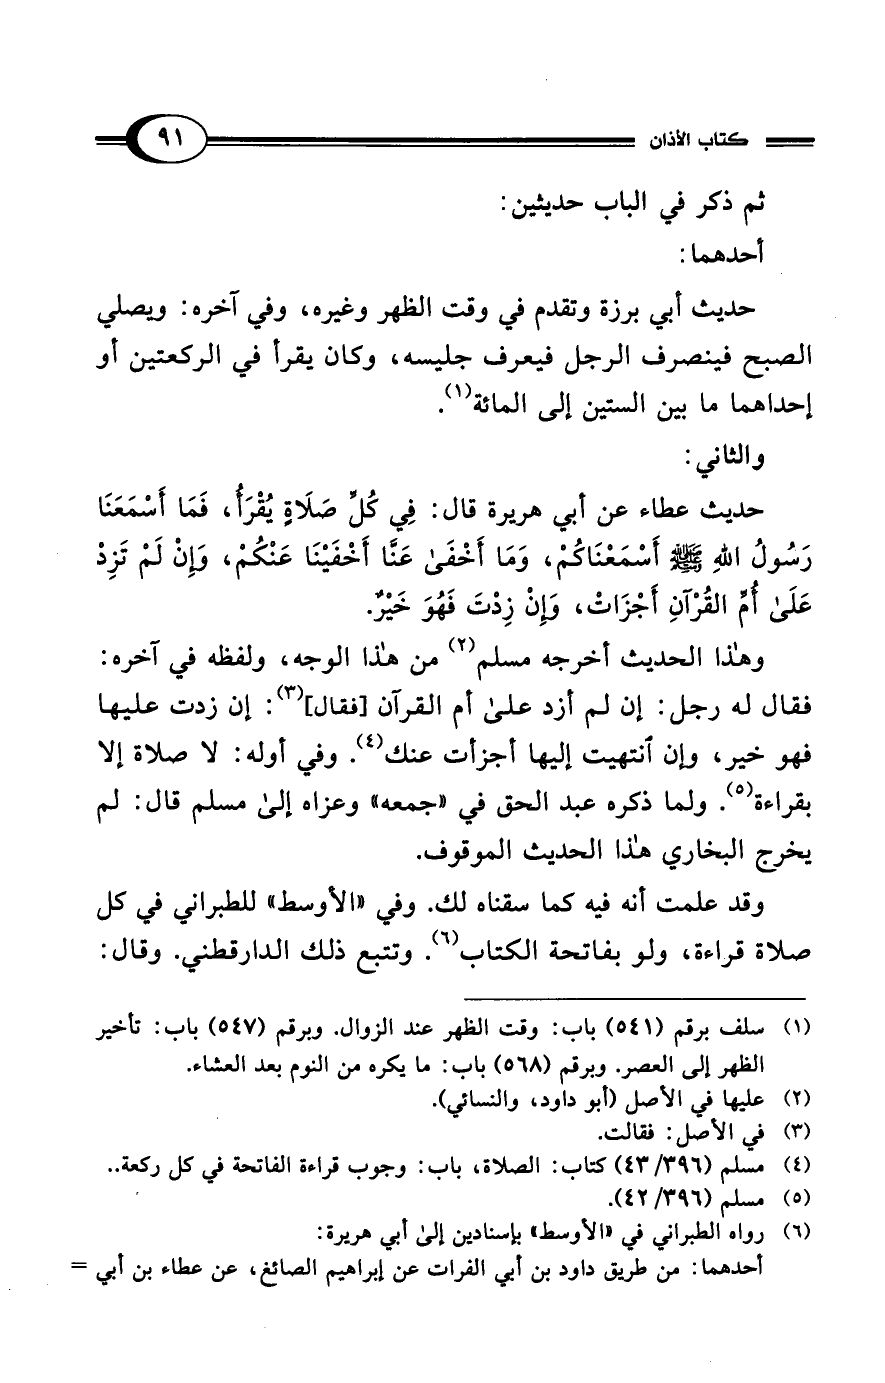 كتاب الأذان ٩١
ثم ذكر في الباب حديثين:
أحدهما:
حديث أبي برزة وتقدم في وقت الظهر وغيره، وفي آخره: ويصلي
الصبح فينصرف الرجل فيعرف جليسه، وكان يقرأ في الركعتين أو
إحداهما ما بين الستين إلى المائة(١).
والثاني:
حديث عطاء عن أبي هريرة قال: فِي كُلِّ صَلَاةٍ يُقْرَأُ، فَمَا أَسْمَعَنَا
رَسُولُ اللهِ ﷺ أَسْمَعْنَاكُمْ، وَمَا أَخْفَىٰ عَنَّا أَخْفَيْنَا عَنْكُمْ، وَإِنْ لَمْ تَزِدْ
عَلَىٰ أُمِّ القُرْآنِ أَجْزَأَتْ، وَإِنْ زِدْتَ فَهُوَ خَيْرٌ.
وهٰذا الحديث أخرجه مسلم(٢) من هٰذا الوجه، ولفظه في آخره:
فقال له رجل: إن لم أزد علىٰ أم القرآن [فقال](٣): إن زدت عليها
فهو خير، وإن ٱنتهيت إليها أجزأت عنك(٤). وفي أوله: لا صلاة إلا
بقراءة(٥). ولما ذكره عبد الحق في «جمعه» وعزاه إلىٰ مسلم قال: لم
يخرج البخاري هٰذا الحديث الموقوف.
وقد علمت أنه فيه كما سقناه لك. وفي «الأوسط» للطبراني في كل
صلاة قراءة، ولو بفاتحة الكتاب(٦). وتتبع ذلك الدارقطني. وقال:
(١) سلف برقم (٥٤١) باب: وقت الظهر عند الزوال. وبرقم (٥٤٧) باب: تأخير
الظهر إلى العصر. وبرقم (٥٦٨) باب: ما يكره من النوم بعد العشاء.
(٢) عليها في الأصل (أبو داود، والنسائي).
(٣) في الأصل: فقالت.
(٤) مسلم (٣٩٦/ ٤٣) كتاب: الصلاة، باب: وجوب قراءة الفاتحة في كل ركعة..
(٥) مسلم (٣٩٦/ ٤٢).
(٦) رواه الطبراني في «الأوسط» بإسنادين إلىٰ أبي هريرة:
أحدهما: من طريق داود بن أبي الفرات عن إبراهيم الصائغ، عن عطاء بن أبي =